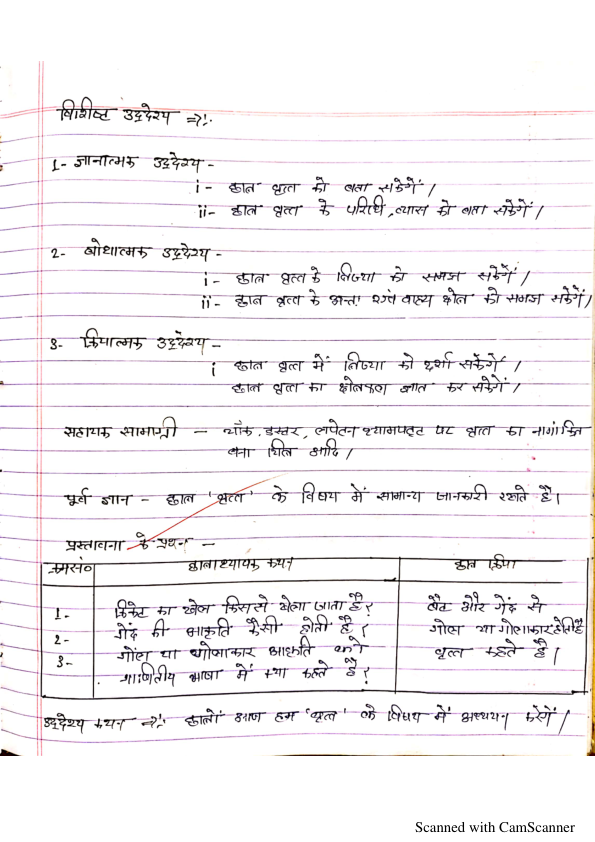 विशिष्ट उद्देश्य ⇒:-
1- ज्ञानात्मक उद्देश्य -
i - छात्र वृत्त को बता सकेगें /
ii- छात्र वृत्त के परिधि, व्यास को बता सकेगें /
2- बोधात्मक उद्देश्य -
i - छात्र वृत्त के त्रिज्या को समझ सकेगें /
ii- छात्र वृत्त के अन्तः एवं वाह्य क्षेत्र को समझ सकेगें /
3- क्रियात्मक उद्देश्य -
i छात्र वृत्त में त्रिज्या को दर्शा सकेगें /
छात्र वृत्त का क्षेत्रफल ज्ञात कर सकेगें /
सहायक सामाग्री - चॉक, डस्टर, लपेटन श्यामपट्ट पर वृत्त का नामांकित
बना चित्र आदि /
पूर्व ज्ञान - छात्र 'वृत्त' के विषय में सामान्य जानकारी रखते है।
प्रस्तावना के प्रश्न -
क्रमसं० छात्राध्यापक कथन छात्र क्रिया
1- क्रिकेट का खेल किससे खेला जाता है? बैट और गेंद से
2- गेंद की आकृति कैसी होती है? गोला या गोलाकार होती है
3- गोला या गोलाकार आकृति को वृत्त कहते है /
गाणितीय भाषा में क्या कहते है?
उद्देश्य कथन ⇒:- छात्रों आज हम 'वृत्त' के विषय में अध्ययन करेगें /
Scanned with CamScanner